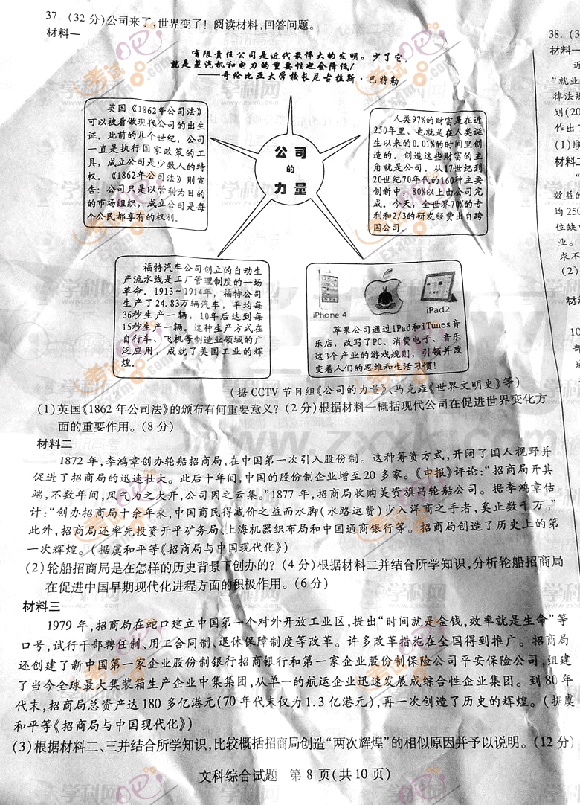 37. (32分)公司来了,世界变了!阅读材料,回答问题。
材料一
有限责任公司是近代最伟大的发明。少了它,
就是蒸汽机和电力的重要性也会降低!
——哥伦比亚大学校长尼古拉斯·巴特勒
英国《1862年公司法》
可以被看做现代公司的出生
证。此前的几个世纪,公司
一直是执行国家政策的工
具,成立公司是少数人的特
权。《1862年公司法》则宣
告:公司只是以营利为目的
的市场组织,成立公司是每
个公民都享有的权利。
公司
的
力量
人类97%的财富是在近
250年里、也就是在人类诞
生以来的0.01%的时间里创
造的。创造这些财富的主
角就是公司。从17世纪到
20世纪70年代的160种主要
创新中,80%以上由公司完
成。今天,全世界70%的专
利和2/3的研发经费出自跨
国公司。
福特汽车公司创立的自动生
产流水线是工厂管理制度的一场
革命。1913-1914年,福特公司
生产了24.83万辆汽车,平均每
36秒生产一辆。10年后达到每
15秒生产一辆。这种生产方式在
自行车、飞机等制造业领域的广
泛应用,成就了美国工业的辉
煌。
iPhone 4
iPad2
苹果公司通过iPad和iTunes音
乐店,改写了PC、消费电子、音乐
这3个产业的游戏规则,引领并改
变着人们的思维和生活习惯!
(据CCTV节目组《公司的力量》、马克垚《世界文明史》等)
(1)英国《1862年公司法》的颁布有何重要意义?(2分)根据材料一概括现代公司在促进世界变化方
面的重要作用。(8分)
材料二
1872年,李鸿章创办轮船招商局,在中国第一次引入股份制。这种筹资方式,开阔了国人视野并
促进了招商局的迅速壮大。此后十年间,中国的股份制企业增至20多家。《申报》评论:"招商局开其
端,不数年间,风气为之大开,公司因之云集。"1877年,招商局收购美资旗昌轮船公司。据李鸿章估
计:"创办招商局十余年来,中国商民得减价之益而水脚(水路运费)少入洋商之手者,奚止数千万。"
此外,招商局还率先投资开平矿务局、上海机器织布局和中国通商银行等。招商局创造了历史上的第
一次辉煌。(据虞和平等《招商局与中国现代化》)
(2)轮船招商局是在怎样的历史背景下创办的?(4分)根据材料二并结合所学知识,分析轮船招商局
在促进中国早期现代化进程方面的积极作用。(6分)
材料三
1979年,招商局在蛇口建立中国第一个对外开放工业区,提出"时间就是金钱,效率就是生命"等
口号,试行干部聘任制、用工合同制、退休保障制度等改革。许多改革措施在全国得到推广。招商局
还创建了新中国第一家企业股份制银行招商银行和第一家企业股份制保险公司平安保险公司,组建
了当今全球最大集装箱生产企业中集集团,从单一的航运企业迅速发展成综合性企业集团。到80年
代末,招商局总资产达180多亿港元(70年代末仅为1.3亿港元),再一次创造了历史的辉煌。(据虞
和平等《招商局与中国现代化》)
(3)根据材料二、三并结合所学知识,比较概括招商局创造"两次辉煌"的相似原因并予以说明。(12分)
文科综合试题 第8页(共10页)
38.
材料